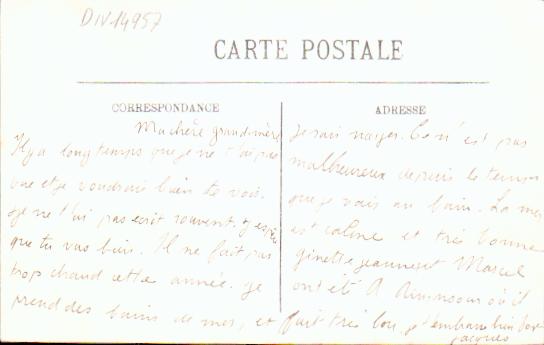 DIV14957
CARTE POSTALE
CORRESPONDANCE
Ma chère grand-mère
Il y a longtemps que je ne t'ai pas
vue et je voudrais bien te voir.
Je ne t'ai pas ecrit souvent. J'espère
que tu vas bien. Il ne fait pas
trop chaud cette année. Je
prend des bains de mer, et
ADRESSE
je sais nager. Ce n'est pas
malheureux depuis le temps
que je vais au bain. La mer
est calme et très bonne
Ginette Jeanne et Marcel
ont été A où il
fait très bon. Je t'embrasse bien fort
Jacques